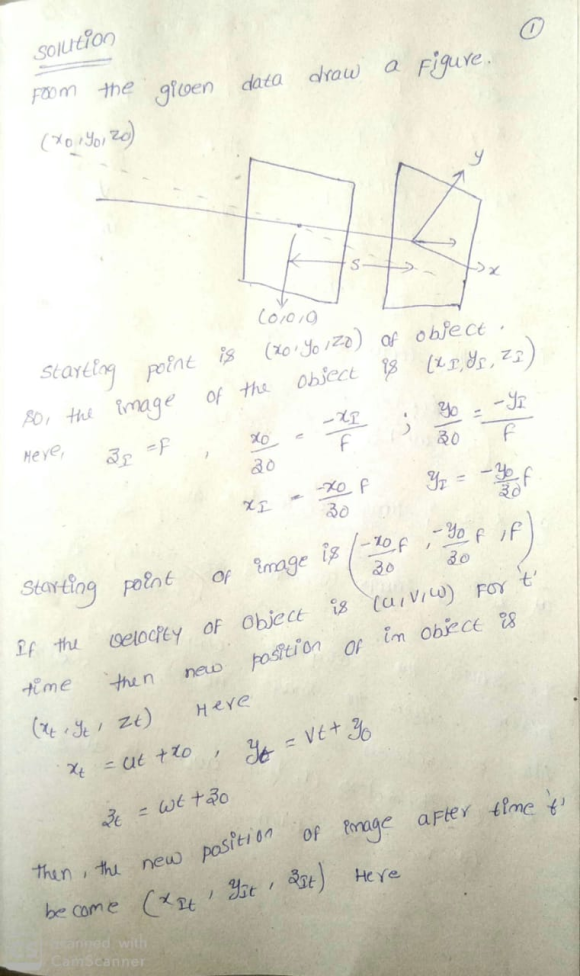 1
Solution
From the given data draw a Figure.
(x0, y0, z0)
y
S
x
(0,0,0)
Starting point is (x0, y0, z0) of object.
so, the image of the object is (xI, yI, zI)
Here, zI = F , x0/z0 = -xI/F ; y0/z0 = -yI/F
xI = -x0/z0 F yI = -y0/z0 F
Starting point of image is (-x0/z0 F, -y0/z0 F, F)
If the velocity of object is (u, v, w) For 't'
time then new position of in object is
(xt, yt, zt) Here
xt = ut + x0 , yt = vt + y0
zt = wt + z0
then, the new position of image after time 't'
become (xIt, yIt, zIt) Here
Scanned with
CamScanner